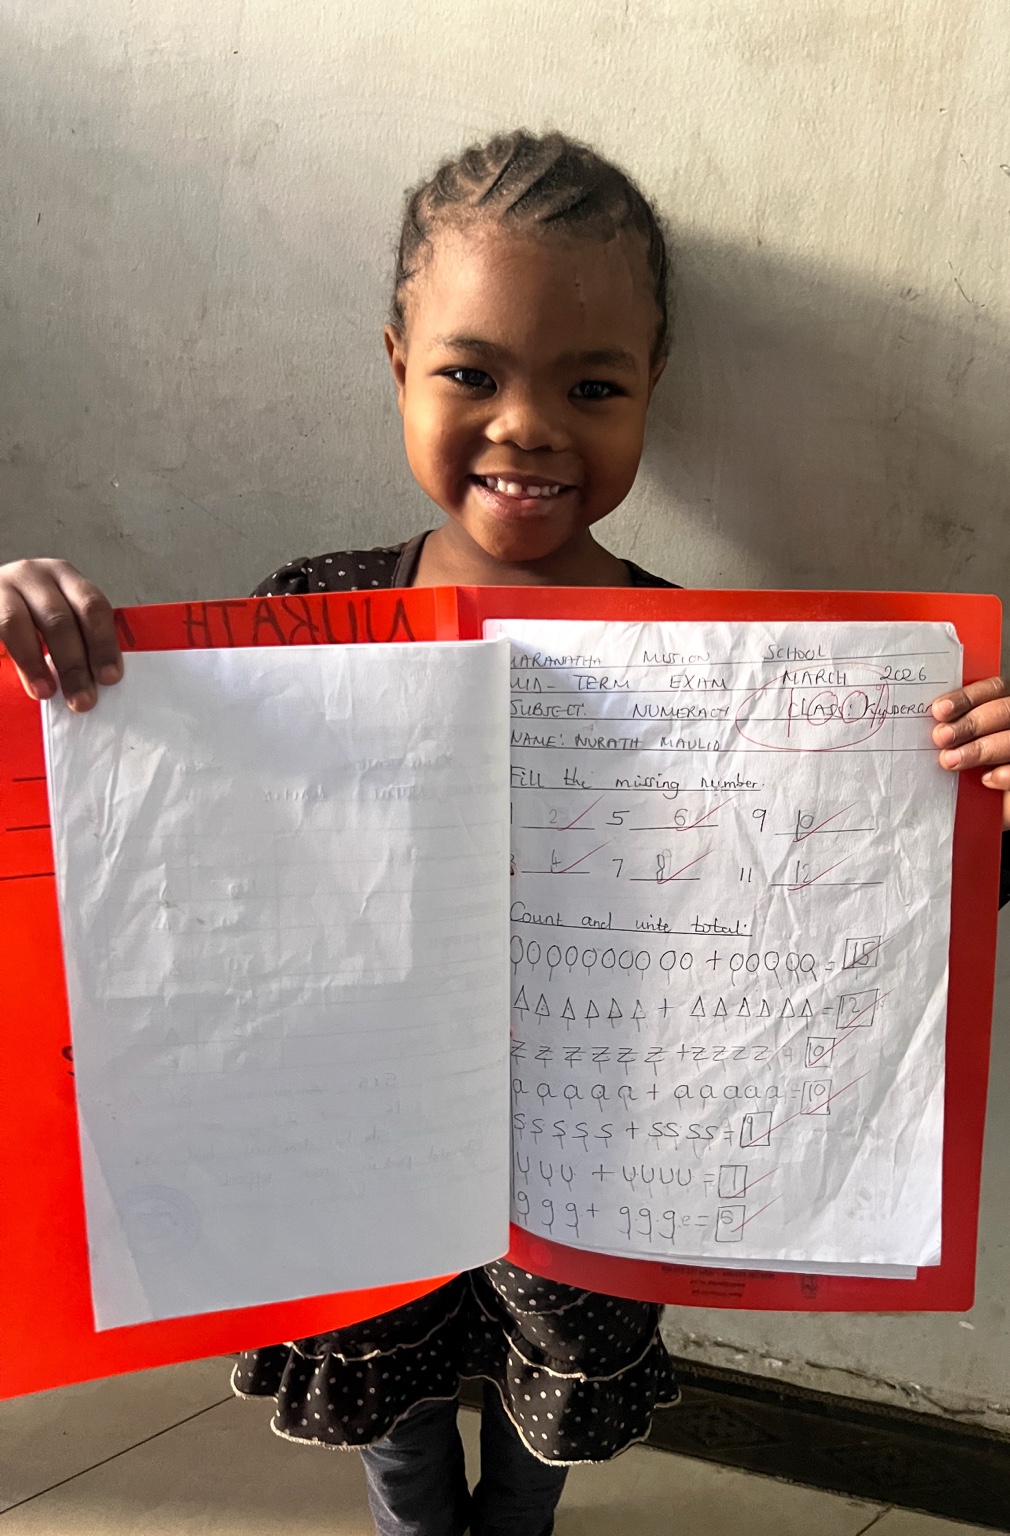 NURATH
MARANATHA MISSION SCHOOL
MID-TERM EXAM MARCH 2026
SUBJECT: NUMERACY CLASS:
NAME: NURATH MAULID
Fill the missing number.
1 2 5 6 9 10
3 4 7 8 11 12
Count and write total.
0000000000 + 00000 = 15
ΔΔΔΔΔΔ + ΔΔΔΔΔΔ = 12
zzzzzz + zzzz = 10
aaaaa + aaaaa = 10
sssss + ssss = 9
yyy + uuuu =
ggg + ggg =